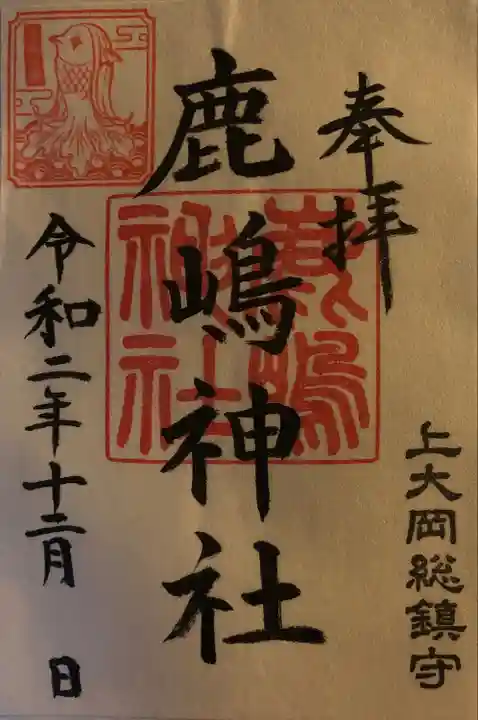 奉拝
上大岡総鎮守
鹿嶋神社
令和二年十二月　日